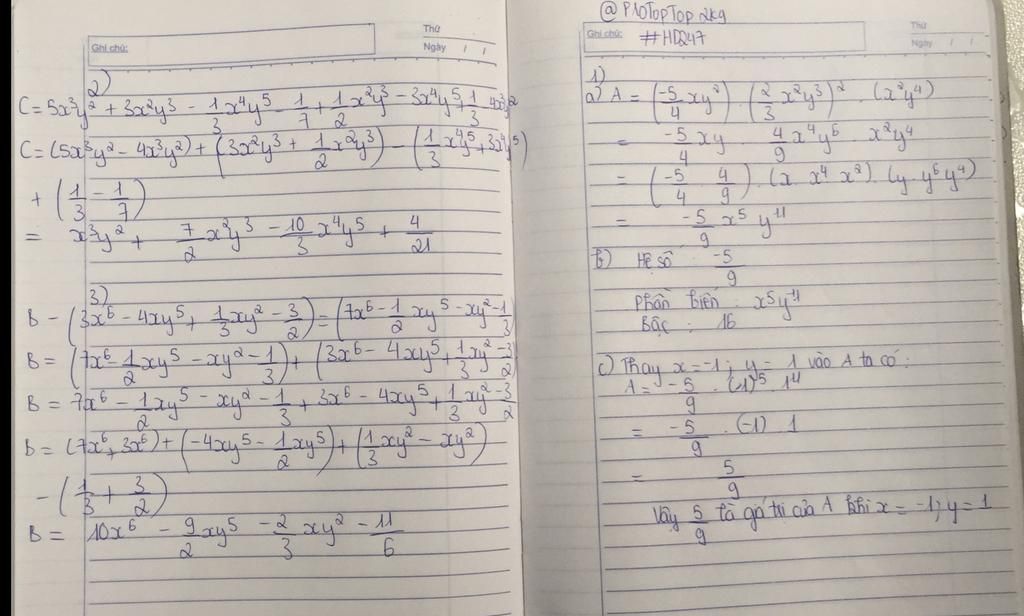 Ghi chú:
Thứ
Ngày / /
2)
C = 5x³y² + 3x²y³ - 1/3 x⁴y⁵ - 1/7 + 1/2 x²y³ - 3x⁴y⁵ + 1/3 - 4x³y²
C = (5x³y² - 4x³y²) + (3x²y³ + 1/2 x²y³) - (1/3 x⁴y⁵ + 3x⁴y⁵)
+ (1/3 - 1/7)
= x³y² + 7/2 x²y³ - 10/3 x⁴y⁵ + 4/21
3)
B - (3x⁶ - 4xy⁵ + 1/3 xy² - 3/2) = (7x⁶ - 1/2 xy⁵ - xy² - 1/3
B = (7x⁶ - 1/2 xy⁵ - xy² - 1/3) + (3x⁶ - 4xy⁵ + 1/3 xy² - 3/2
B = 7x⁶ - 1/2 xy⁵ - xy² - 1/3 + 3x⁶ - 4xy⁵ + 1/3 xy² - 3/2
B = (7x⁶ + 3x⁶) + (-4xy⁵ - 1/2 xy⁵) + (1/3 xy² - xy²)
- (1/3 + 3/2)
B = 10x⁶ - 9/2 xy⁵ - 2/3 xy² - 11/6
@P1OTopTop2kg
Ghi chú:
##HD247
Thứ
Ngày / /
1)
a) A = (-5/4 xy²) . (2/3 x²y³)² . (x²y⁴)
= -5/4 xy . 4/9 x⁴y⁶ . x²y⁴
= (-5/4 . 4/9) . (x . x⁴ x²) . (y . y⁶ y⁴)
= -5/9 x⁵ y¹¹
b) Hệ số : -5/9
Phần biến : x⁵y¹¹
Bậc : 16
c) Thay x = -1 ; y = 1 vào A ta có :
A = -5/9 . (-1)⁵ . 1¹¹
= -5/9 . (-1) . 1
= 5/9
Vậy 5/9 là giá trị của A khi x = -1 ; y = 1